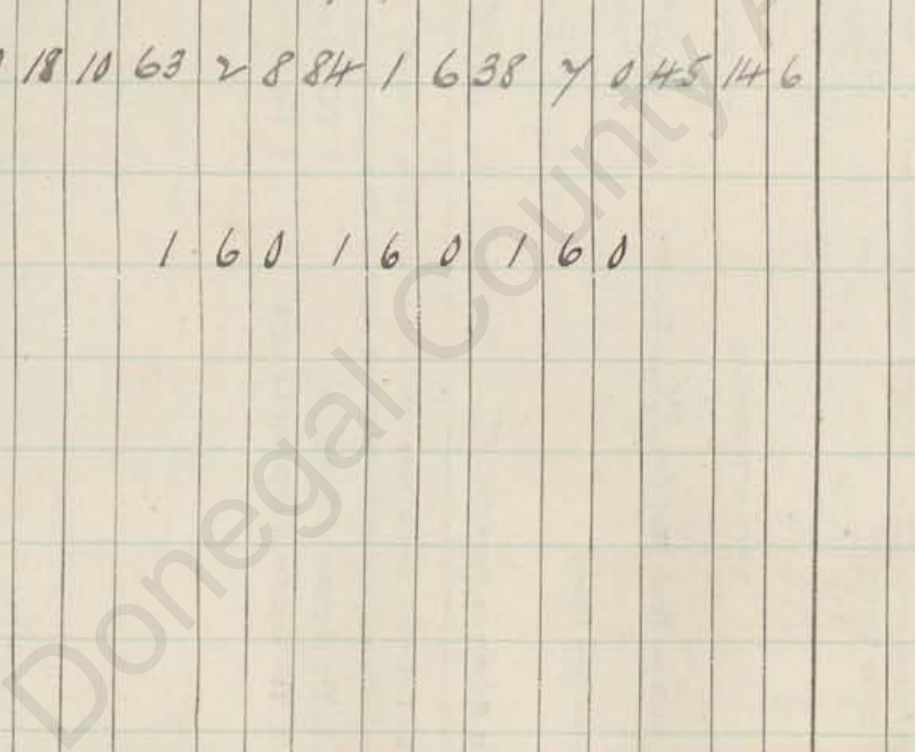 18 10 63 2 8 84 1 6 38 7 0 45 14 6
1 6 0 1 6 0 1 6 0
Donegal County